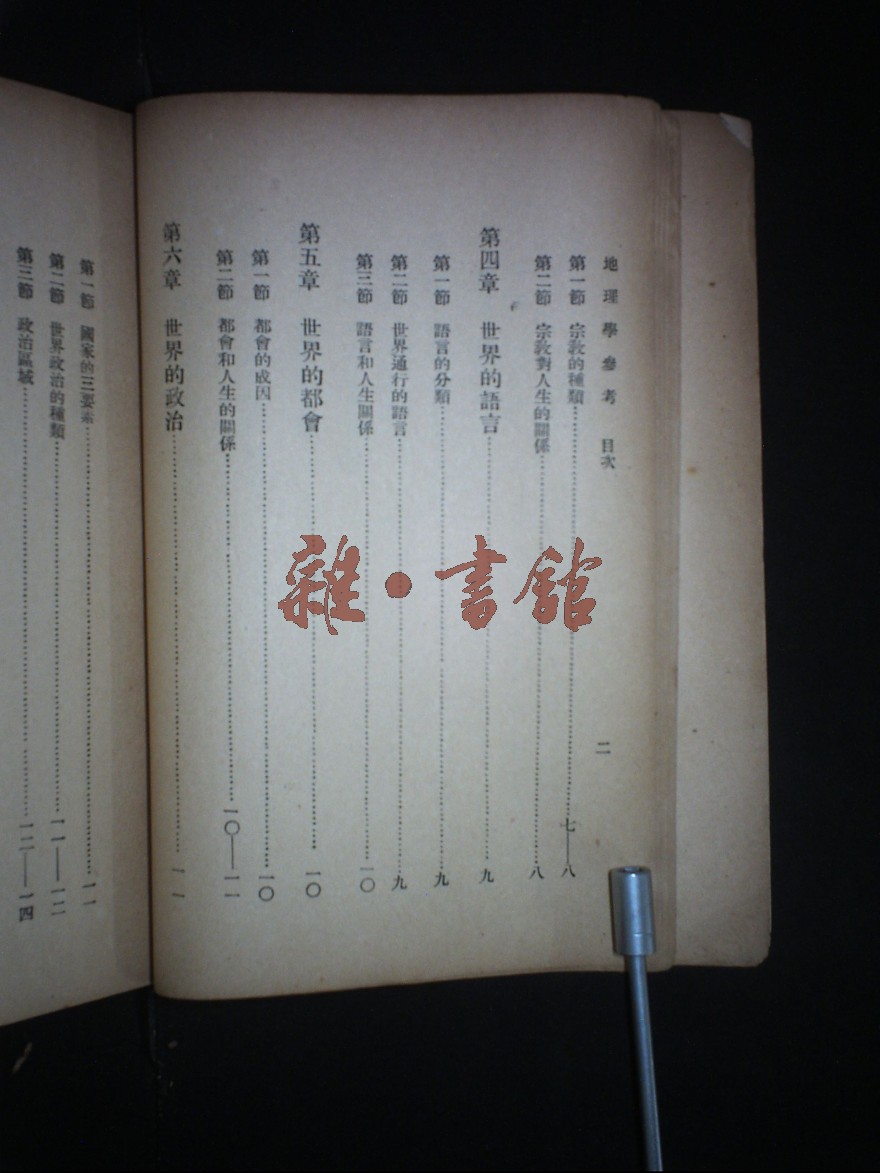 地理學參考 目次 二
第一節 宗教的種類 七——八
第二節 宗教對人生的關係 八
第四章 世界的語言 九
第一節 語言的分類 九
第二節 世界通行的語言 九
第三節 語言和人生關係 一〇
第五章 世界的都會 一〇
第一節 都會的成因 一〇
第二節 都會和人生的關係 一〇——一一
第六章 世界的政治 一一
第一節 國家的三要素 一一
第二節 世界政治的種類 一一——一二
第三節 政治區域 一二——一四
雜·書館